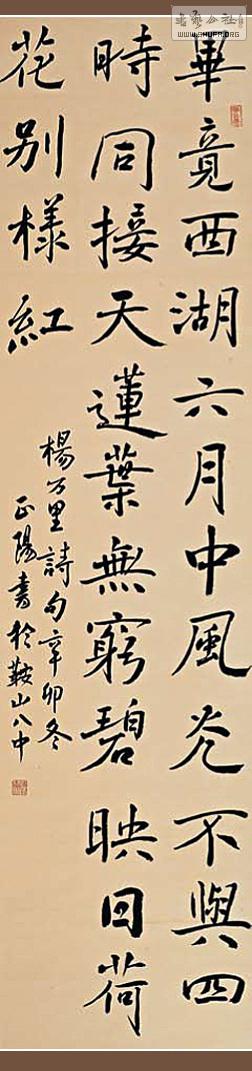 畢竟西湖六月中風光不與四
時同接天蓮葉無窮碧映日荷
花别樣紅
楊万里詩句辛卯冬
正陽書於鞍山八中
書藝公社
WWW.SHUFA.ORG